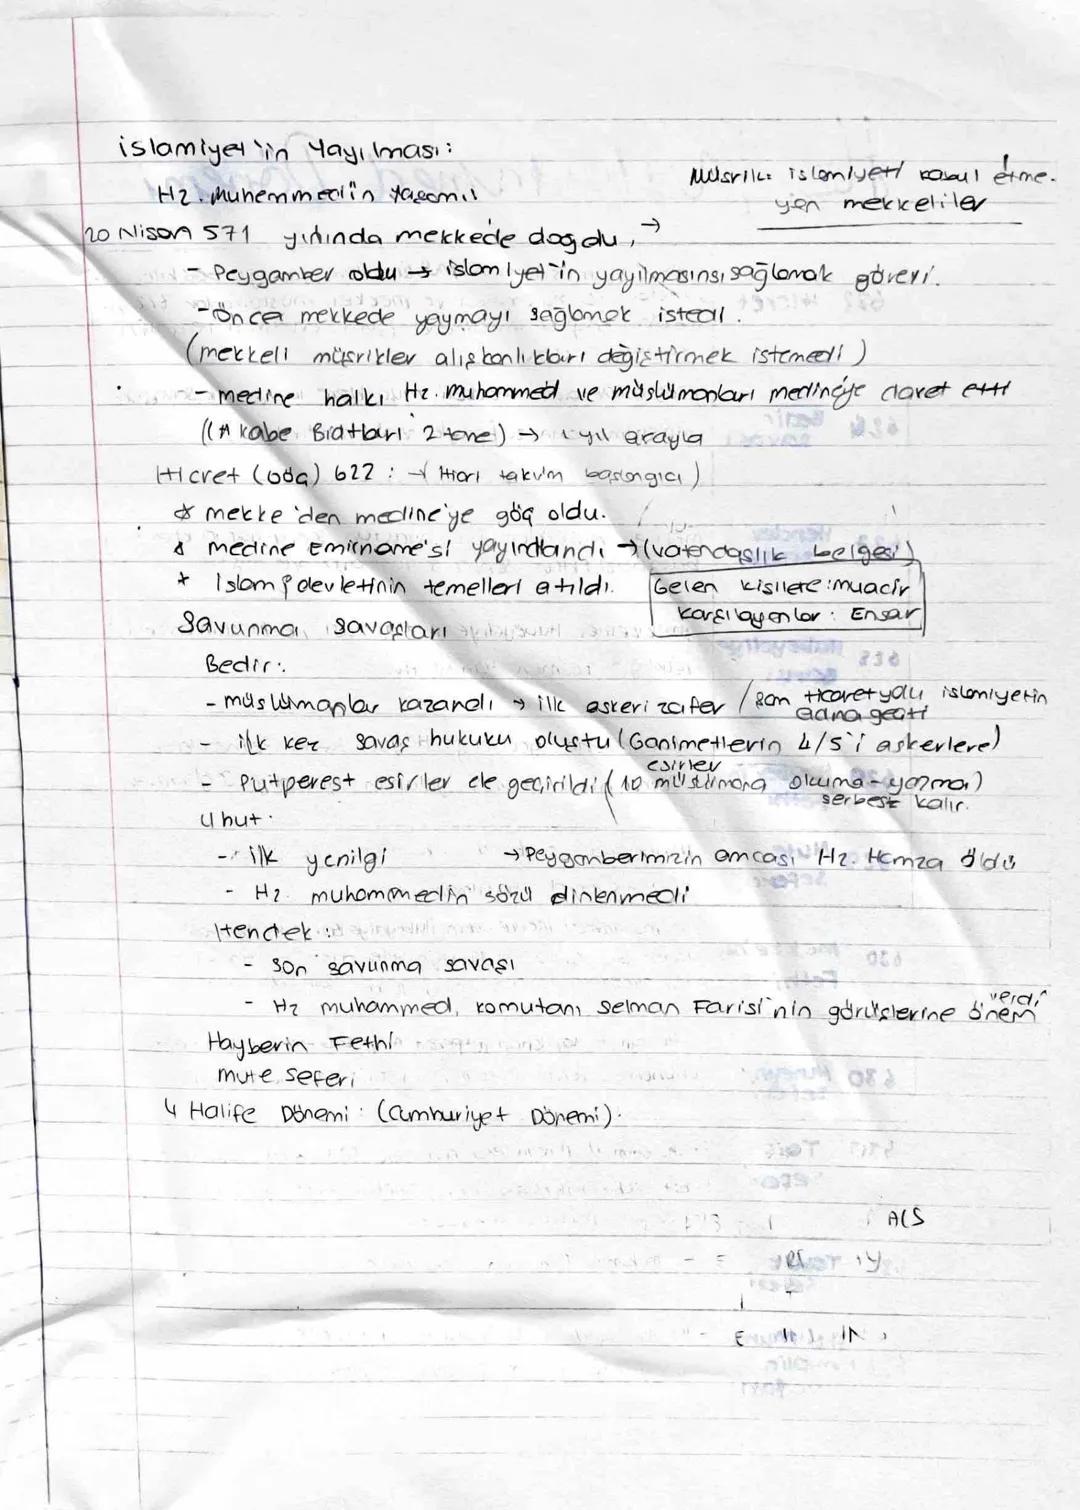 islamiyet'in Yayılması:
Hz. Muhemmed'in Yaşamı:
Müşrik: islamiyeti kabul etme-
yen mekkeliler
20 Nisan 571 yılında mekkede doğdu, →
- Peygamber oldu → islamiyet'in yayılmasınsı sağlamak görevi.
- Önce mekkede yaymayı sağlamak istedi.
(mekkeli müşrikler alışkanlıkları değiştirmek istemedi)
- medine halkı Hz. muhammed ve müslümanları medineye davet etti
((Akabe Biatları 2 tane) → 1 yıl arayla
Hicret (göç) 622 : → Hicri takvim başlangıcı)
* mekke'den medine'ye göç oldu.
* medine Emirname'si yayınlandı → (vatandaşlık belgesi)
* Islam devletinin temelleri atıldı.
Gelen kişilere: muacir
Karşılayanlar: Ensar
Savunma savaşları
Bedir:
- müslümanlar kazandı → ilk askeri zafer / Şam ticaret yolu islamiyetin
adına geçti
- ilk kez savaş hukuku oluştu (Ganimetlerin 4/5'i askerlere)
- Putperest esirler ele geçirildi (10 müslümana okuma-yazma)
esirler
serbest kalır.
Uhut:
- ilk yenilgi → Peygamberimizin amcası Hz. Hamza öldü
- Hz. muhammedin sözü dinlenmedi
Hendek:
- son savunma savaşı
- Hz muhammed, komutanı Selman Farisi'nin görüşlerine önem
verdi
Hayberin Fethi
mute seferi
4 Halife Dönemi: (Cumhuriyet Dönemi).